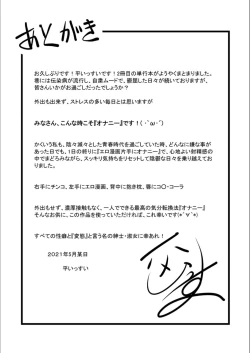 あとがき
お久しぶりです！平いっすいです！2冊目の単行本がようやくまとまりました。
巷には伝染病が流行し、自粛ムードで、悶屈した日々が続いておりますが、
皆さんいかがお過ごしだったでしょうか？
外出も出来ず、ストレスの多い毎日とは思いますが
みなさん、こんな時こそ『オナニー』です！(・`ω・´)
かくいう私も、陰々滅々とした青春時代を過ごしていた時、どんなに嫌な事が
あった日でも、1日の終りに『エロ漫画片手にオナニー』で、心地よい射精感の
中でまどろみながら、スッキリ気持ちをリセットして陰鬱な日々を乗り越えてお
りました。
右手にチンコ、左手にエロ漫画、背中に抱き枕、顎にコ○・コーラ
外出もせず、濃厚接触もなく、一人でできる最高の気分転換法『オナニー』
そんなお供に、この作品を使っていただければ、これ幸いです(*´∀`*)
すべての性癖と『変態』と言う名の紳士・淑女に幸あれ！
2021年5月某日
平いっすい